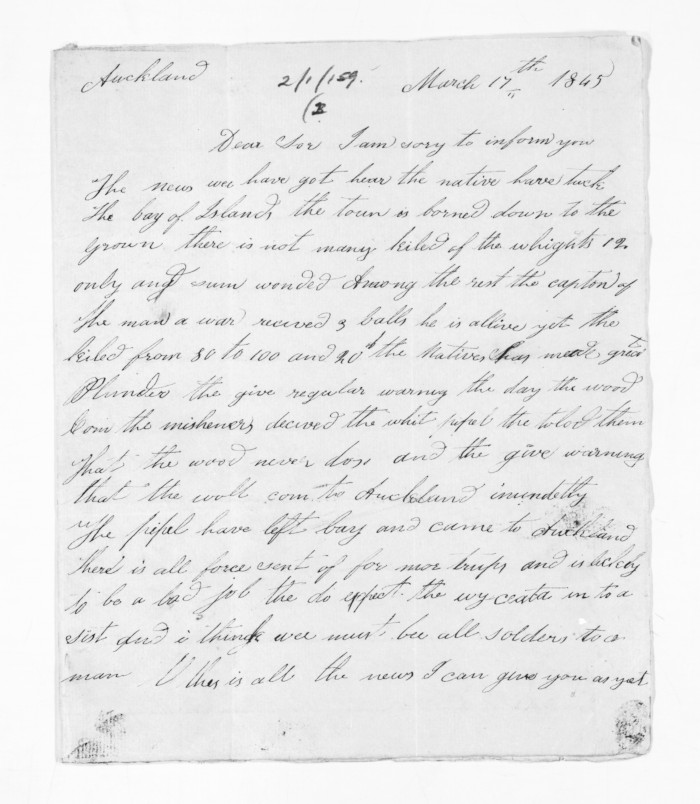 Auckland 2/1/159. March 17th 1845
(3
Dear Sor I am sory to inform you
The news wee have got hear the native have tuck
the bay of Islands the town is borned down to the
groun there is not maniy kiled of the whights 12
only and sum wonded Among the rest the capton of
the man a war recived 3 balls he is allive yet the
kiled from 80 to 100 and 20 the Natives has made great
Plunder the give regular warning the day the wood
Com the misheners decived the whit pepal the told them
That the wood never dow and the give warning
that the woll com to Auckland imundetly
The pepal have left bay and came to Auckland
there is all force sent of for mor trups and is lickely
to be a bad job the do expect the wycata in to a
sist And i think wee must bee all solders to a
man this is all the news I can give you as yat